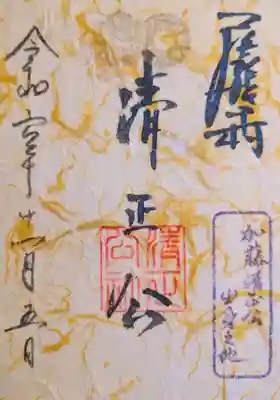 清正公
令和元年十一月五日
加藤清正公
出身之地
清正
公印